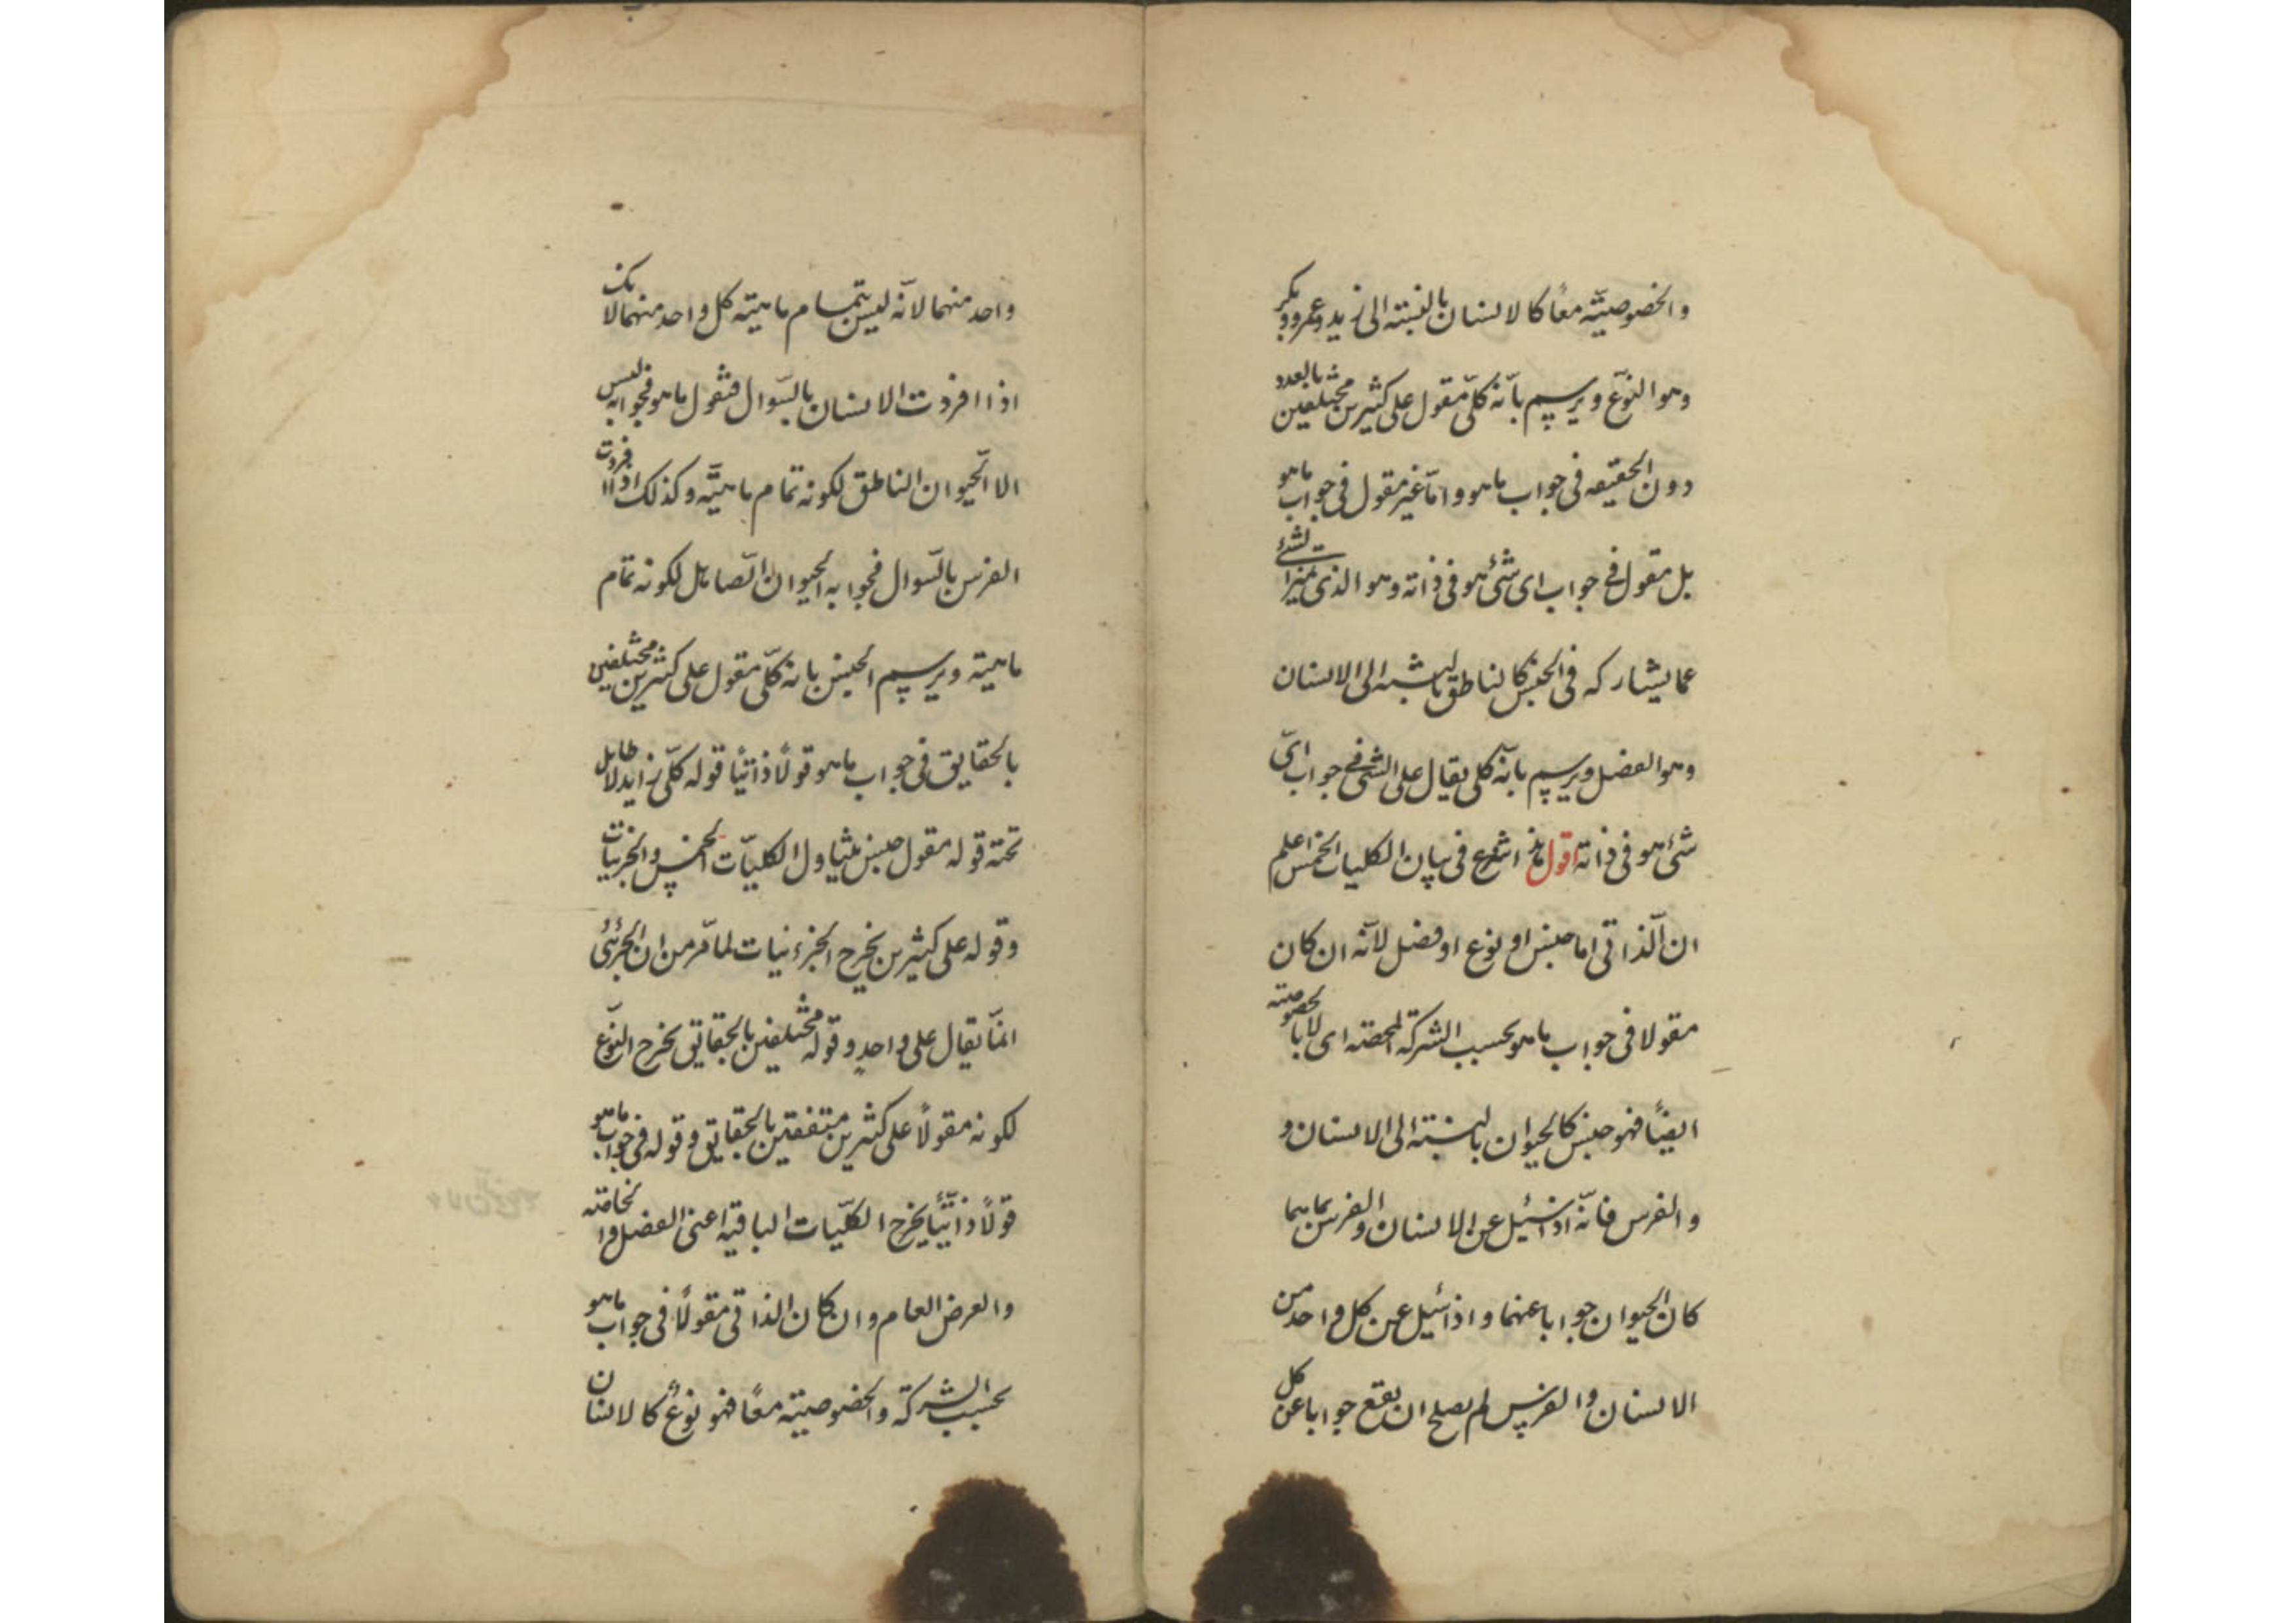 والخصوصيّة معًا كالانسان بالنسبته الى زيد وعمرو وبكر
وهو النوّع ويرسم بانّه كلّى مقول على كثيرين مختلفين بالعدد
دون الحقيقه فى جواب ماهو وامّا غير مقول فى جواب ماهو
بل مقول فى جواب اى شئ هو فى ذاته وهو الذى يميز الشئ
عما يشاركه فى الجنس كالناطق بالنسبته الى الانسان
وهو الفصل ويرسم بانّه كلى يقال على الشئ فى جواب اىّ
شئ هو فى ذاته اقول هذا شرع فى بيان الكليات الخمس اعلم
ان الّذاتى اما جنس او نوع او فصل لانّه ان كان
مقولا فى جواب ماهو بحسب الشركة المحضته اى لا بالخصوصيته
ايضًا فهو جنس كالحيوان بالنسبته الى الانسان و
والفرس فانّه اذا سئيل عن الانسان والفرس بماهما
كان الحيوان جوابا عنهما واذا سئيل عن كل واحد من
الانسان والفرس لم يصلح ان يقع جوابا عن كل
واحد منهما لانّه ليس بتمام ماهيته كل واحد منهما لانك
اذا افردت الانسان بالسّوال فتقول ماهو فجوابه ليس
الا الّحيوان الناطق لكونه تمام ماهيّته وكذلك اذا افردت
الفرس بالسّوال فجوابه الحيوان الّصاهل لكونه تمام
ماهيته ويرسم الجنس بانه كلّى مقول على كثيرين مختلفين
بالحقايق فى جواب ماهو قولًا ذاتيًا قوله كلّى زايد لا طايل
تحته قوله مقول جنس يتناول الكليّات الخمس والجزيات
وقوله على كثيرين يخرج الجزءئيات لما مّر من ان الجزئى
انمّا يقال على واحدٍ وقوله مختلفين بالحقايق يخرج النوّع
لكونه مقولًا على كثيرين متفقين بالحقايق وقوله فى جواب ماهو
قولًا ذاتيًّا يخرج الكلّيات الباقيه اعنى الفصل والخاصّته
والعرض العام وان كان الذاتى مقولًا فى جواب ماهو
بحسب الشركة والخصوصيته معًا فهو نوع كالانسان